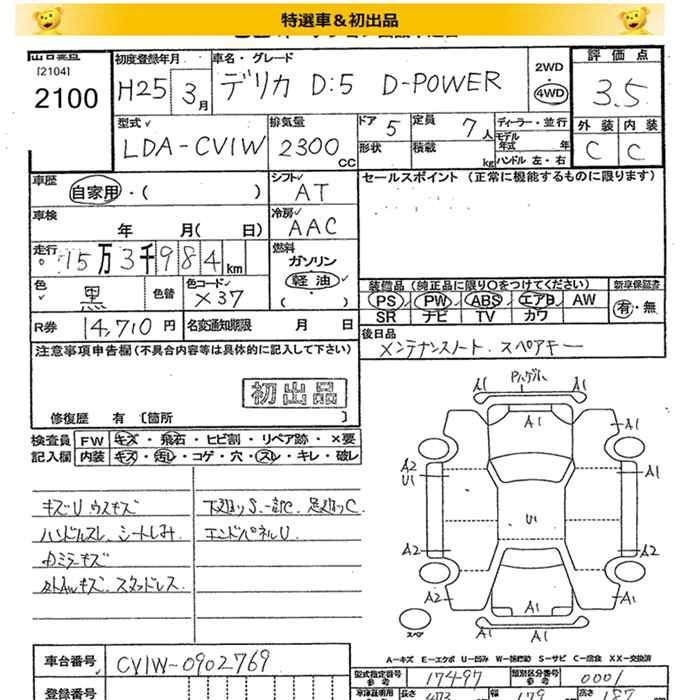 特選車&初出品
[2104]
2100
初度登録年月
H25 3月
車名・グレード
デリカ D:5 D-POWER
2WD
4WD
評価点
3.5
型式
LDA-CV1W
排気量
2300 CC
ドア 5
形状
定員 7人
積載 kg
ディーラー・並行
モデル
年式 年
ハンドル 左・右
外装 内装
C C
車歴
自家用・( )
シフト
AT
セールスポイント (正常に機能するものに限ります)
車検
年 月( 日)
冷房
AAC
走行
15万3千984km
燃料
ガソリン
軽油
( )
色
黒
色替
色カラーNo
X37
装備品 (純正品に限り○をつけてください)
新車保証書
PS PW ABS エアB AW
SR ナビ TV カワ
有・無
R券 14,710円
名変通知期限 月 日
後日品
メンテナンスノート.スペアキー
注意事項申告欄(不具合内容等は具体的に記入して下さい)
初出品
修復歴 有 〔箇所 〕
検査員
記入欄
FW キズ・飛石・ヒビ割・リペア跡・×要
内装 キズ・汚レ・コゲ・穴・スレ・キレ・破レ
キズU.ウスキズ
ハンドルスレ.シートしみ.
カミラーキズ
スタッドレス.
下廻りS一部C.足廻りC.
エンドパネルU.
A1 A1
A1 A1
A2
U1
A1
U1
A2 A2
A2 A2
A1
A1 A1
スペア
A-キズ E-エクボ U-凹み W-補修跡 S-サビ C-腐食 XX-交換済
車台番号
CV1W-0902769
型式指定番号
参考
17497
類別区分番号
参考
0001
登録番号
長さ
幅 179
高さ 187